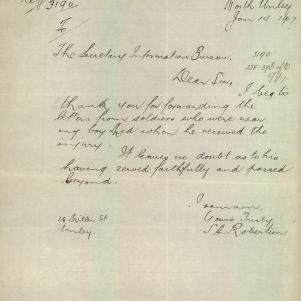 Ref 3190
North Unley
Jan 14 1917
To
The Secretary Information Bureau.
3190
Dear Sir,
I beg to
thank you for forwarding the
letters from soldiers who were near
my boy Led when he received the
injury.
It leaves no doubt as to his
having served faithfully and passed
beyond.
I remain
Yours Truly
S A. Robertson
Unley.